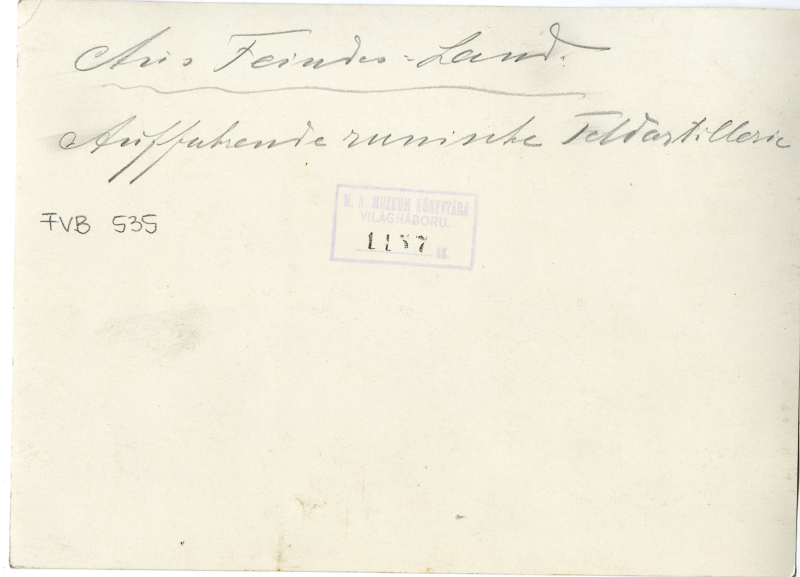 Aus Feindes-Land.
Auffahrende russische Feldartillerie
FVB 535
M. N. MUZEUM KÖNYVTÁRA
VILÁGHÁBORU.
1157